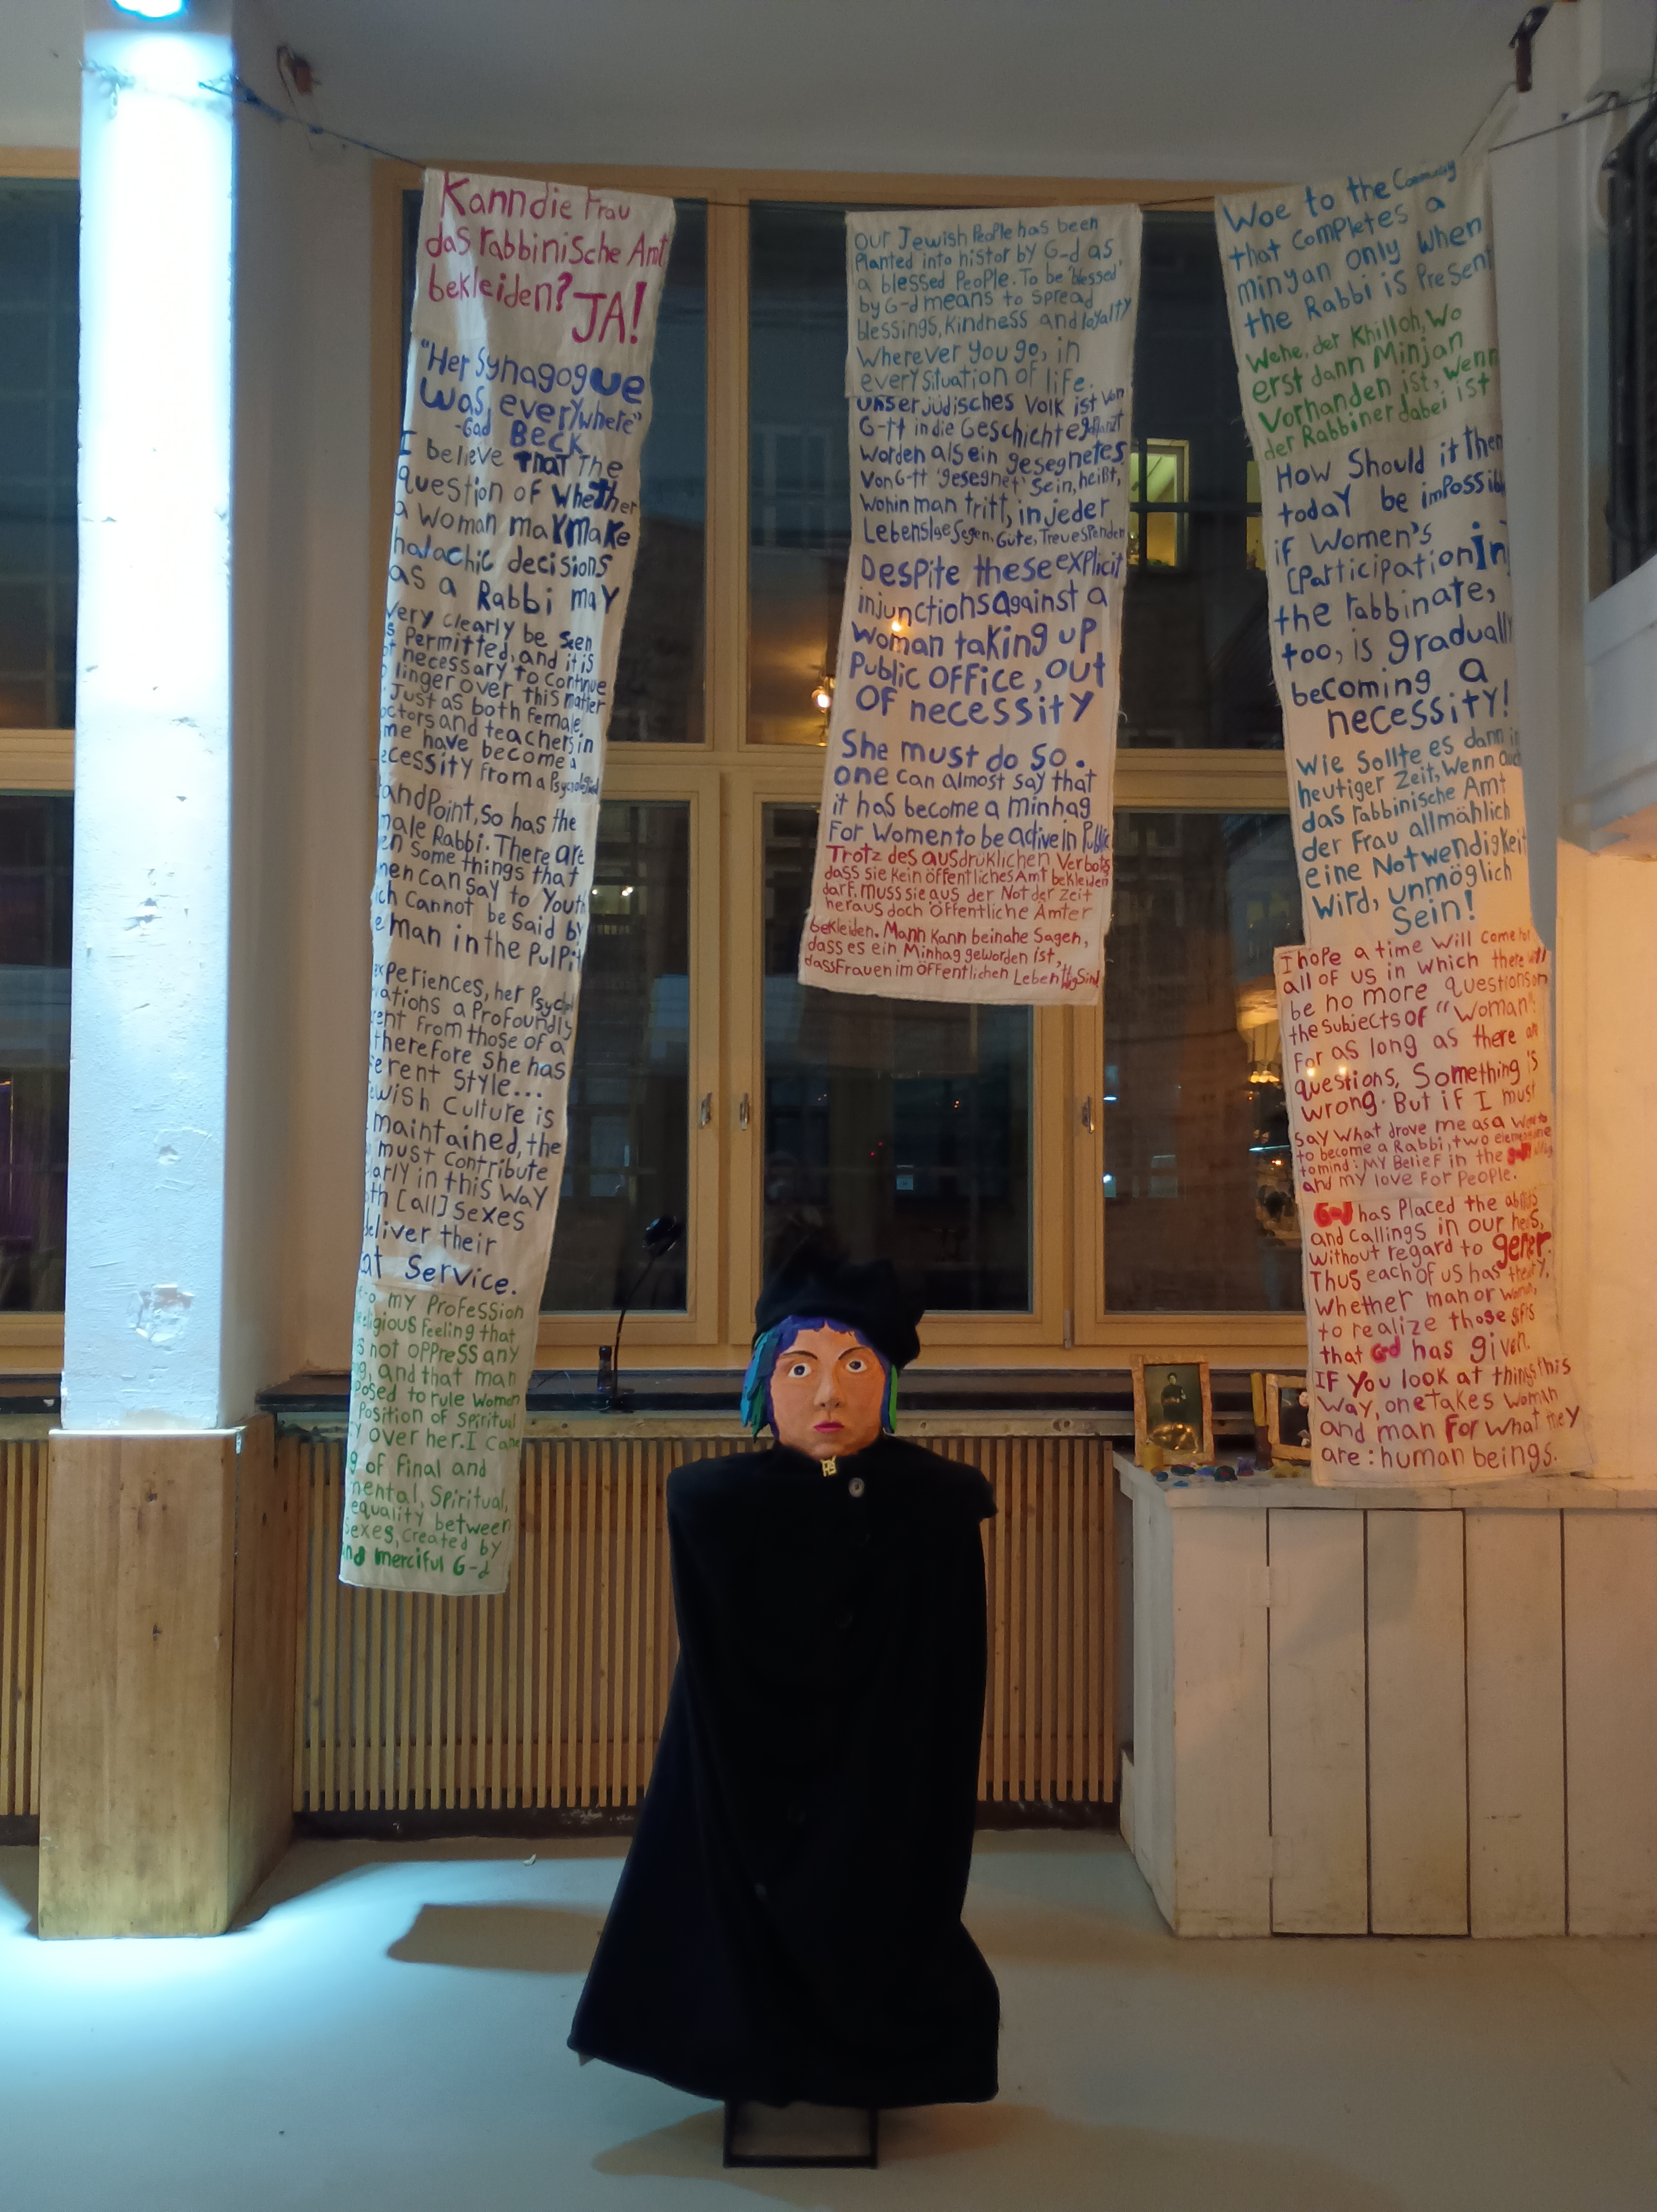 Kann die Frau
das rabbinische Amt
bekleiden?
JA!
"Her Synagogue
was everywhere"
-Gad Beck
I believe that the
question of whether
a woman may make
halachic decisions
as a Rabbi may
very clearly be seen
permitted, and it is
necessary to continue
linger over this matter
Just as both female
and teachers in
have become a
from a
so has the
Rabbi. There are
some things that
can say to Youth
cannot be said by
man in the Pulpit
experiences, her
a Profoundly
from those of a
therefore she has
style...
Culture is
maintained, the
must contribute
in this way
[all] sexes
deliver their
Service.
my Profession
feeling that
not oppress any
and that man
to rule Woman
Position of Spiritual
over her. I came
of final and
Spiritual,
equality between
sexes, created by
merciful G-d
our Jewish People has been
Planted into histor by G-d as
a blessed People. To be 'blessed'
by G-d means to spread
blessings, kindness and loyalty
wherever you go, in
every situation of life.
unser jüdisches Volk ist von
G-tt in die Geschichte gepflanzt
worden als ein gesegnetes
Von G-tt 'gesegnet' sein, heißt,
wohin man tritt, in jeder
Lebenslge Segen, Güte, Treue spenden
Despite these explicit
injunctions against a
woman taking up
Public office, out
of necessity
She must do so.
one can almost say that
it has become a minhag
for women to be active in Public
Trotz des ausdrüklichen Verbots
dass sie kein öffentliches Amt bekleiden
darf, muss sie aus der Not der Zeit
heraus doch öffentliche Ämter
bekleiden. Mann kann beinahe sagen,
dass es ein Minhag geworden ist,
dass Frauen im öffentlichen Leben sind
Woe to the
that completes a
minyan only when
the Rabbi is Present
Wehe, der Khilloh, wo
erst dann Minjan
Vorhanden ist, wenn
der Rabbiner dabei ist
How should it then
today be impossible
if Women's
[participation in]
the rabbinate,
too, is gradually
becoming a
necessity!
Wie sollte es dann in
heutiger Zeit, wenn auch
das rabbinische Amt
der Frau allmählich
eine Notwendigkeit
wird, unmöglich
Sein!
I hope a time will come for
all of us in which there will
be no more questions on
the subjects of "woman".
For as long as there are
questions, something is
wrong. But if I must
say what drove me as a
to become a Rabbi, two
to mind: my Belief in the
and my love for People.
G-d has placed the
and callings in our
without regard to
Thus each of us has
whether man or woman,
to realize those gifts
that G-d has given.
IF you look at things this
way, one takes woman
and man for what they
are: human beings.